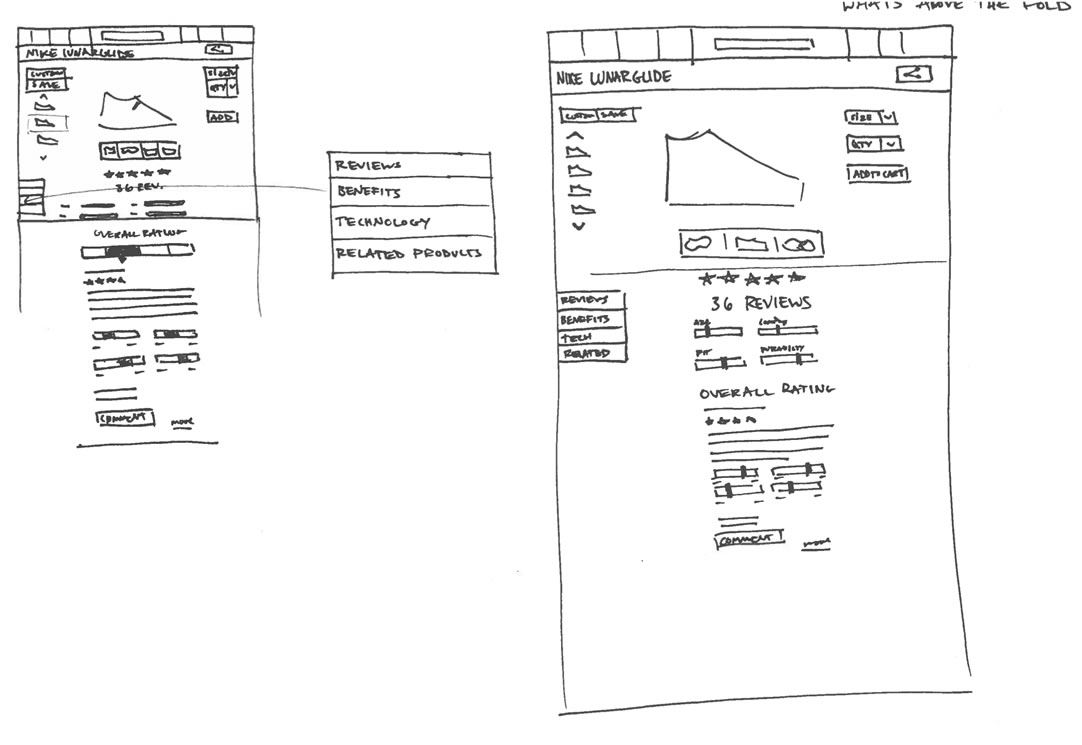 WHAT'S ABOVE THE FOLD
NIKE LUNARGLIDE
CUSTOM
SAVE
SIZE
QTY
ADD
36 REV.
OVERALL RATING
COMMENT
MORE
REVIEWS
BENEFITS
TECHNOLOGY
RELATED PRODUCTS
NIKE LUNARGLIDE
CUSTOM SAVE
SIZE
QTY
ADD TO CART
36 REVIEWS
REVIEWS
BENEFITS
TECH
RELATED
FIT DURABILITY
OVERALL RATING
COMMENT
MORE